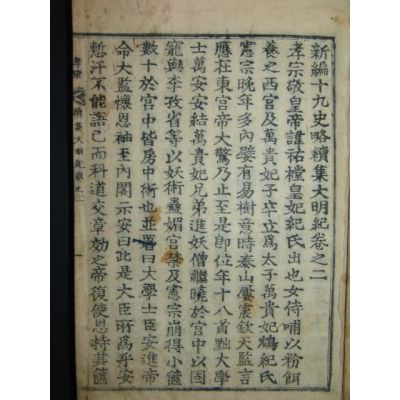 新編十九史略續集大明紀卷之二
孝宗敬皇帝諱祐樘皇妃紀氏出也女侍哺以粉餌
養之西宮及萬貴妃子卒立爲太子萬貴妃鴆紀氏
憲宗晚年多內嬖有易樹意時泰山屢震欽天監言
應在東宮帝大驚乃止至是卽位年十八首黜大學
士萬安安結萬貴妃兄弟進妖僧繼曉於宮中以固
寵與李孜省等以妖術蠱媚宮禁及憲宗崩得小篋
數十於宮中皆房中術也並署曰大學士臣安進帝
命大監懷恩袖至內閣示安曰此是大臣所爲乎安
慙汗不能語已而科道交章劾之帝復使恩持其篋